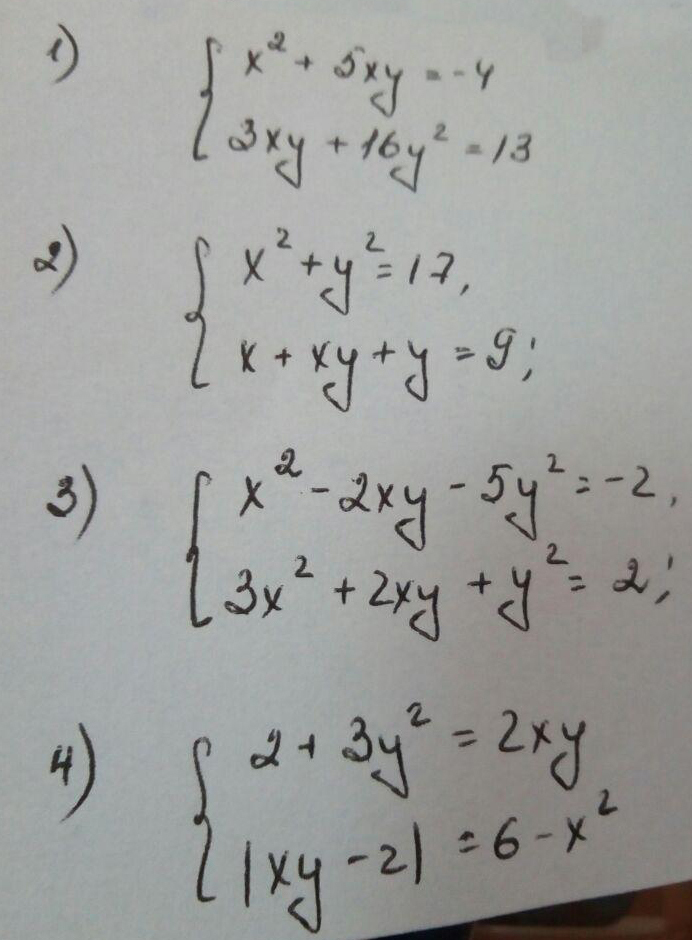 1) x² + 5xy = -4
3xy + 16y² = 13
2) x² + y² = 17,
x + xy + y = 9;
3) x² - 2xy - 5y² = -2,
3x² + 2xy + y² = 2;
4) 2 + 3y² = 2xy
|xy - 2| = 6 - x²